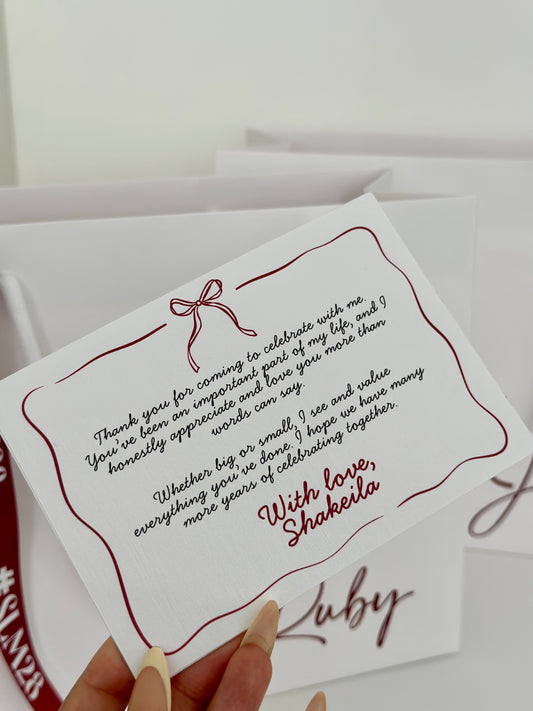 Thank you for coming to celebrate with me.
You've been an important part of my life, and I
honestly appreciate and love you more than
words can say.
Whether big or small, I see and value
everything you've done. I hope we have many
more years of celebrating together.
With love,
Shakeila
Ruby
#SLM28